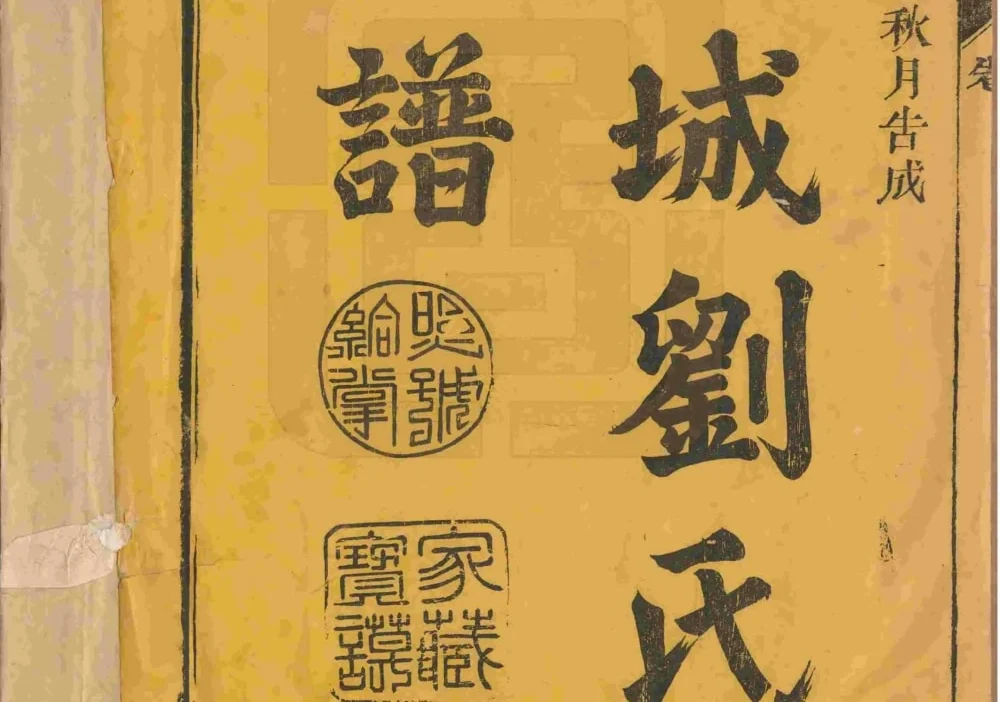 秋月告成
城劉氏
譜
號
給掌
家藏
寶